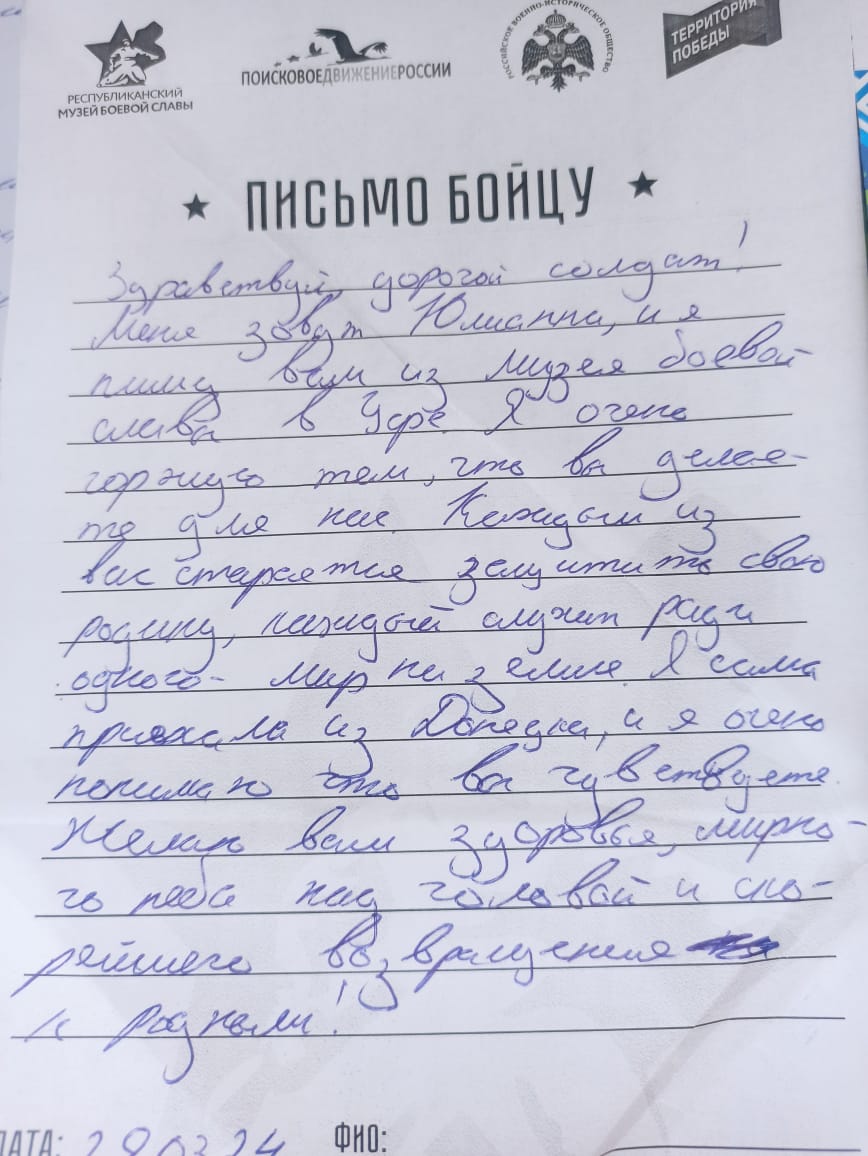 РЕСПУБЛИКАНСКИЙ
МУЗЕЙ БОЕВОЙ СЛАВЫ
ПОИСКОВОЕДВИЖЕНИЕРОССИИ
РОССИЙСКОЕ ВОЕННО-ИСТОРИЧЕСКОЕ ОБЩЕСТВО
ТЕРРИТОРИЯ
ПОБЕДЫ
★ ПИСЬМО БОЙЦУ ★
Здравствуй, дорогой солдат!
Меня зовут Юлианна, и я
пишу вам из музея боевой
славы в Уфе. Я очень
горжусь тем, что вы делае-
те для нас. Каждый из
вас старается защитить свою
родину, каждый служит ради
одного - мир на земле. Я сама
приехала из Донецка, и я очень
понимаю что вы чувствуете.
Желаю вам здоровья, мирно-
го неба над головой и ско-
рейшего возвращения
к родным!
ДАТА: 28.03.24 ФИО: